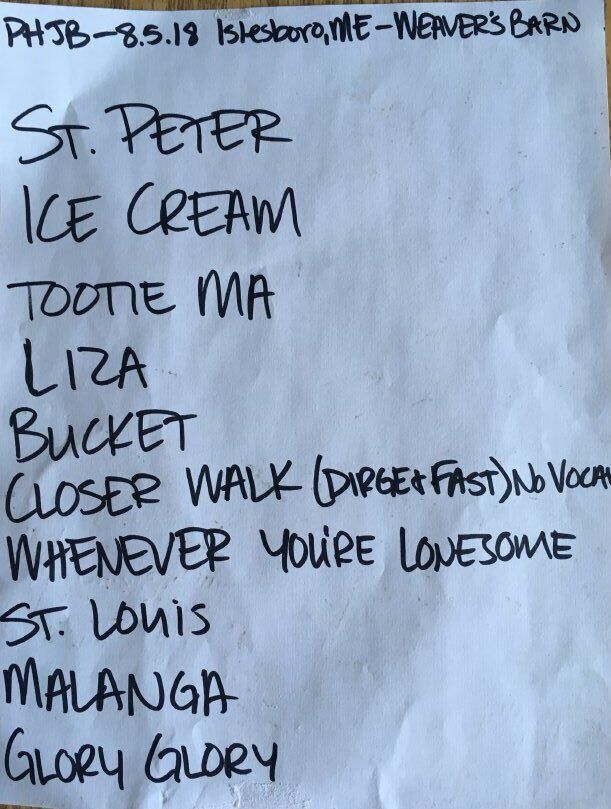 PHJB-8.5.18 Islesboro, ME-WEAVER'S BARN
ST. PETER
ICE CREAM
TOOTIE MA
LIZA
BUCKET
CLOSER WALK (DIRGE & FAST) NO VOCA
WHENEVER YOU'RE LONESOME
ST. LOUIS
MALANGA
GLORY GLORY